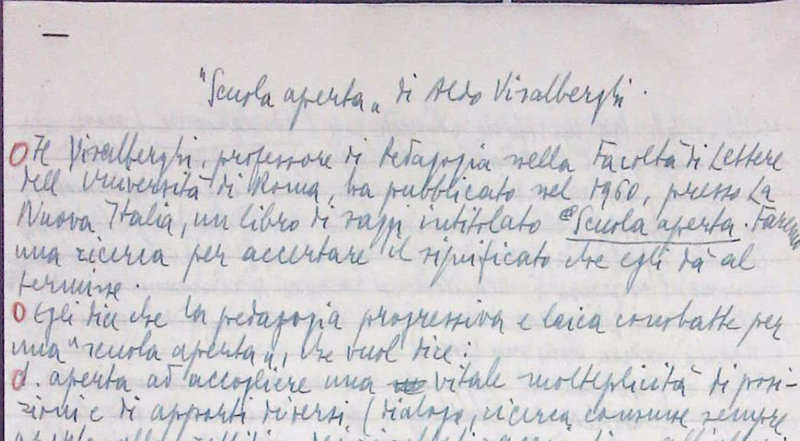 "Scuola aperta„ di Aldo Visalberghi.
Il Visalberghi, professore di Pedagogia nella Facoltà di Lettere
dell'Università di Roma, ha pubblicato nel 1960, presso La
Nuova Italia, un libro di saggi intitolato "Scuola aperta. Faremo
una ricerca per accertare il significato che egli dà al
termine.
Egli dice che la pedagogia progressiva e laica combatte per
una "scuola aperta„, che vuol dire:
1. aperta ad accogliere una vitale molteplicità di posi-
zioni e di apporti diversi, (dialogo, ricerca comune sempre